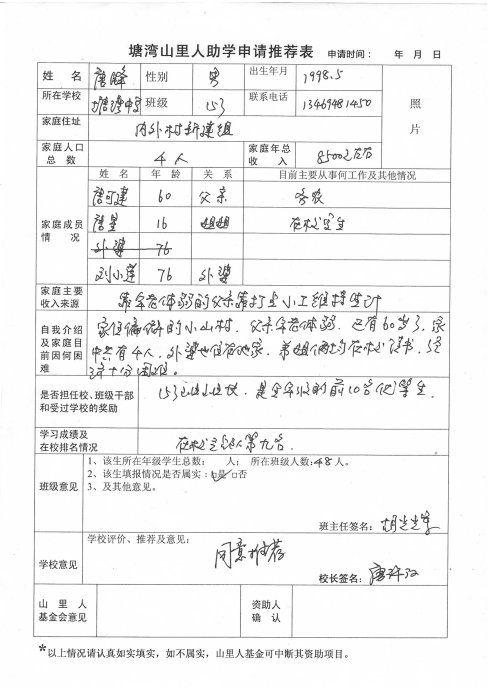 塘湾山里人助学申请推荐表 申请时间： 年 月 日
姓 名 唐峰 性别 男 出生年月 1998.5 照片
所在学校 塘湾中学 班级 153 联系电话 13469481450
家庭住址 内外村新建组
家庭人口总数 4人 家庭年总收入 8500元左右
家庭成员情况 姓 名 年 龄 关 系 目前主要从事何工作及其他情况
唐可建 60 父亲 务农
唐星 16 姐姐 在校学生
外婆 76
刘小莲 76 外婆
家庭主要收入来源 靠年老体弱的父亲靠打点小工维持生计
自我介绍及家庭目前因何困难 家住偏僻的小山村，父亲年老体弱，已有60岁了，家
中共有4人，外婆也住在她家，弟姐俩均在校读书，经
济十分困难。
是否担任校、班级干部和受过学校的奖励 是全年级的前10名优学生.
学习成绩及在校排名情况 第九名.
班级意见 1、该生所在年级学生总数： 人； 所在班级人数：48人。
2、该生填报情况是否属实：☑是 □否
3、及其他意见。
班主任签名：
学校意见 学校评价、推荐及意见：
同意推荐
校长签名：
山里人基金会意见 资助人确认
*以上情况请认真如实填实，如不属实，山里人基金可中断其资助项目。